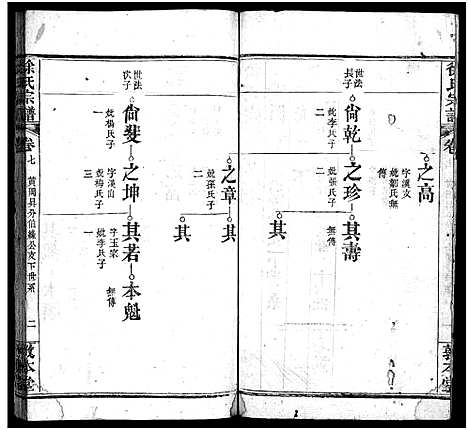 徐氏宗譜
卷
之高
字漢支
娶鄒氏無
傳
世法
長子
尙乾
娶李氏子
二
之珍
娶張氏子
二
其壽
無傳
之章
娶孫氏子
二
其
其
世法
次子
尙斐
娶楊氏子
一
之坤
字漢
娶梅氏子
三
其若
字玉宗
娶李氏子
一
本魁
無傳
徐氏宗譜
卷七
黃岡縣分伯緣公支下世系
二
敦本堂
敦本堂